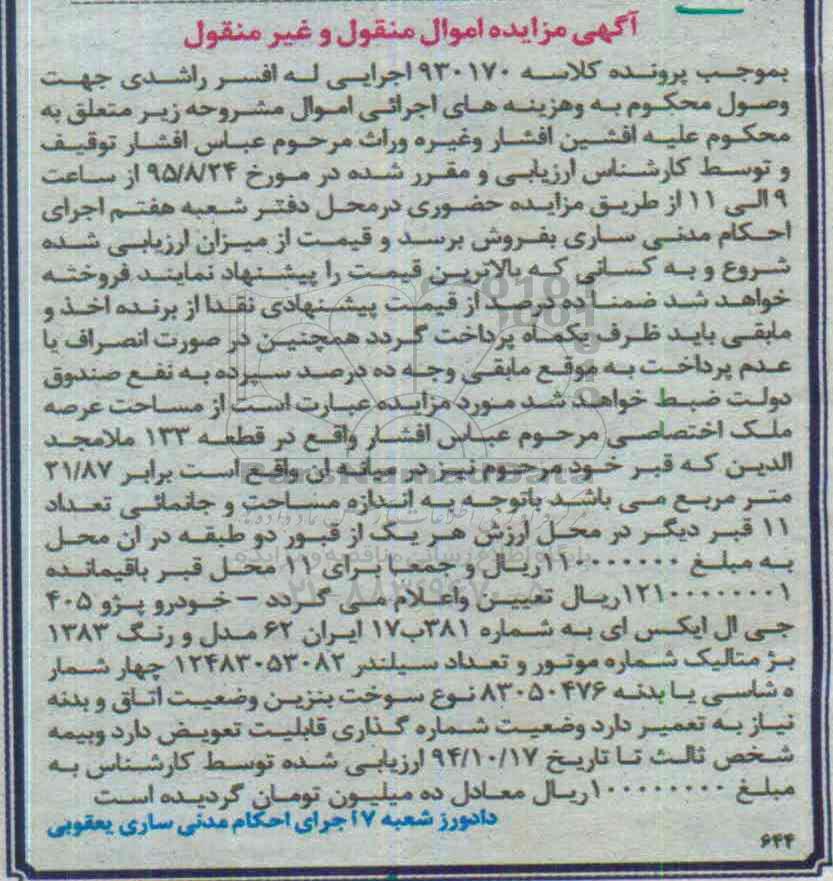 آگهی مزایده اموال منقول و غیر منقول
بموجب پرونده کلاسه ۹۳۰۱۷۰ اجرایی له افسر راشدی جهت
وصول محکوم به وهزینه های اجرائی اموال مشروحه زیر متعلق به
محکوم علیه افشین افشار وغیره وراث مرحوم عباس افشار توقیف
و توسط کارشناس ارزیابی و مقرر شده در مورخ ۹۵/۸/۲۴ از ساعت
۹ الی ۱۱ از طریق مزایده حضوری درمحل دفتر شعبه هفتم اجرای
احکام مدنی ساری بفروش برسد و قیمت از میزان ارزیابی شده
شروع و به کسانی که بالاترین قیمت را پیشنهاد نمایند فروخته
خواهد شد ضمنا ده درصد از قیمت پیشنهادی نقدا از برنده اخذ و
مابقی باید ظرف یکماه پرداخت گردد همچنین در صورت انصراف یا
عدم پرداخت به موقع مابقی وجه ده درصد سپرده به نفع صندوق
دولت ضبط خواهد شد مورد مزایده عبارت است از مساحت عرصه
ملک اختصاصی مرحوم عباس افشار واقع در قطعه ۱۳۳ ملامجد
الدین که قبر خود مرحوم نیز در میانه ان واقع است برابر ۲۱/۸۷
متر مربع می باشد باتوجه به اندازه مساحت و جانمائی تعداد
۱۱ قبر دیگر در محل ارزش هر یک از قبور دو طبقه در ان محل
به مبلغ ۱۱۰۰۰۰۰۰۰ریال و جمعا برای ۱۱ محل قبر باقیمانده
۱۲۱۰۰۰۰۰۰۰۱ریال تعیین واعلام می گردد – خودرو پژو ۴۰۵
جی ال ایکس ای به شماره ۳۸۱ب۱۷ ایران ۶۲ مدل و رنگ ۱۳۸۳
بژ متالیک شماره موتور و تعداد سیلندر ۱۲۴۸۳۰۵۳۰۸۲ چهار شمار
ه شاسی یا بدنه ۸۳۰۵۰۴۷۶ نوع سوخت بنزین وضعیت اتاق و بدنه
نیاز به تعمیر دارد وضعیت شماره گذاری قابلیت تعویض دارد وبیمه
شخص ثالث تا تاریخ ۹۴/۱۰/۱۷ ارزیابی شده توسط کارشناس به
مبلغ ۱۰۰۰۰۰۰۰۰ریال معادل ده میلیون تومان گردیده است
دادورز شعبه ۷ اجرای احکام مدنی ساری یعقوبی
۶۴۴
ParsNamadData